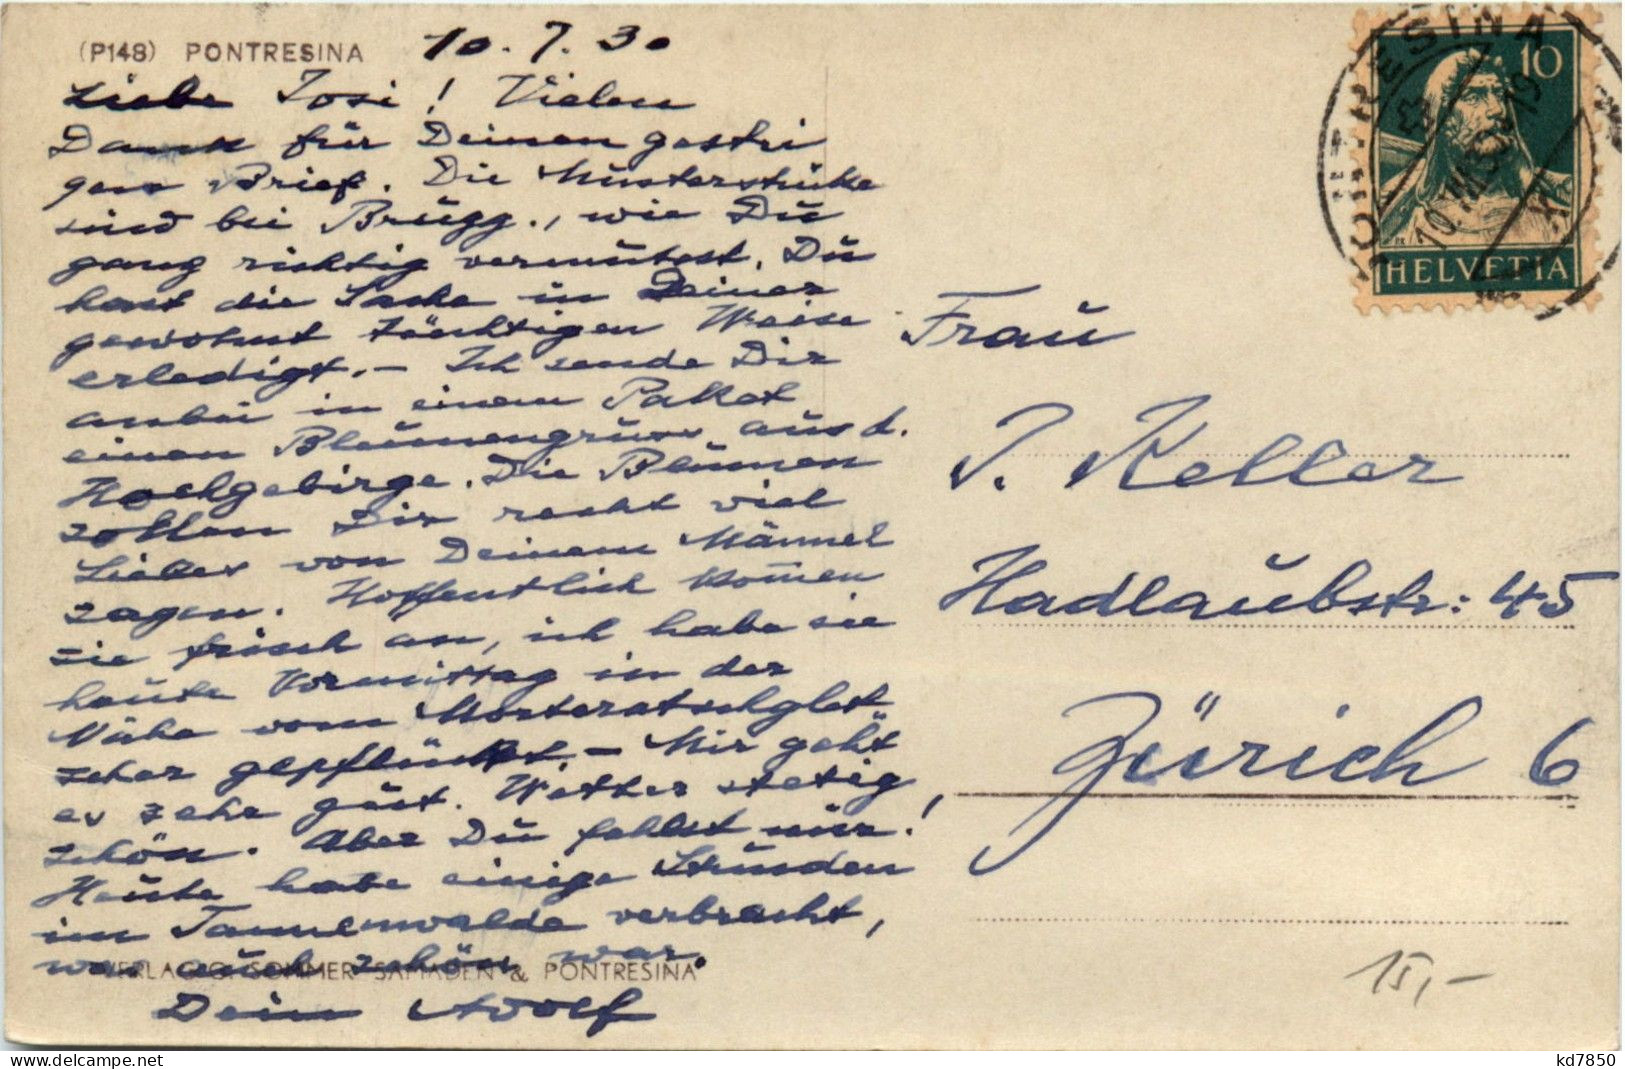 (P148) PONTRESINA 10.7.30
Liebe Josi! Vielen
Dank für Deinen gestri
gen Brief. Die Musterstücke
sind bei Brugg., wie Du
ganz richtig vermutest. Du
hast die Sache in Deiner
gewohnt tüchtigen Weise
erledigt. – Ich sende Dir
anbei in einem Paket
einen Blumengruss aus d.
Hochgebirge. Die Blumen
sollen Dir recht viel
Liebes von Deinem Männel
sagen. Hoffentlich kom̅en
sie frisch an, ich habe sie
heute Vormittag in der
Nähe vom Morteratschglet
scher gepflückt. – Mir geht
es sehr gut. Wetter stetig
schön. Aber Du fehlst mir!
Heute habe einige Stunden
im Tannenwalde verbracht,
was auch schön war.
VERLAG G. SOMMER SAMADEN & PONTRESINA
Dein Adolf
PONTRESINA
10
10.VII.30 19
HELVETIA
Frau
J. Keller
Hadlaubstr: 45
Zürich 6
15,-
kd7850